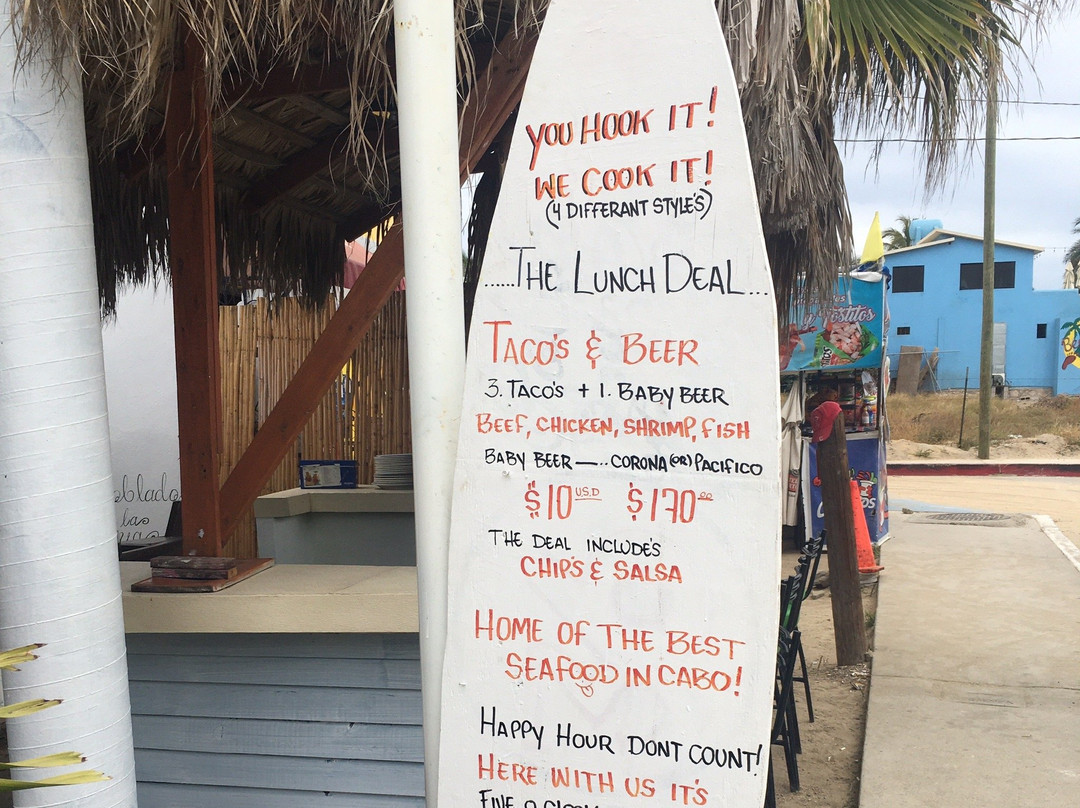 YOU HOOK IT!
WE COOK IT!
(4 DIFFERANT STYLE'S)
......THE LUNCH DEAL...
TACO'S & BEER
3. TACO'S + 1. BABY BEER
BEEF, CHICKEN, SHRIMP, FISH
BABY BEER —.. CORONA (OR) PACIFICO
$10 U.S.D $170.00
THE DEAL INCLUDE'S
CHIP'S & SALSA
HOME OF THE BEST
SEAFOOD IN CABO!
HAPPY HOUR DONT COUNT!
HERE WITH US IT'S
FIVE O